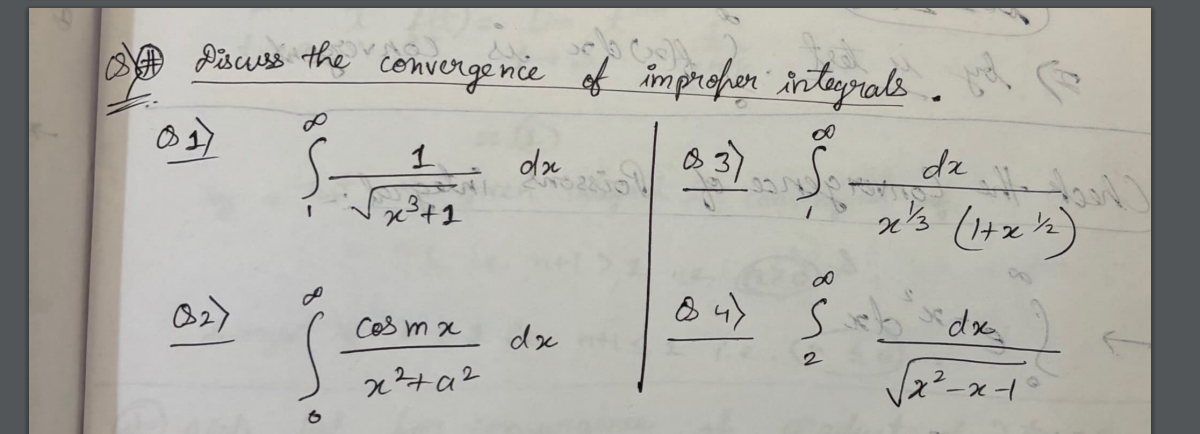 Q) # Discuss the convergence of improper integrals.
Q 1) ∫₁^∞ 1/√(x³+1) dx
Q 3) ∫₁^∞ dx/(x^{1/3} (1+x^{1/2}))
Q 2) ∫₀^∞ cos mx/(x²+a²) dx
Q 4) ∫₂^∞ dx/√(x²-x-1)